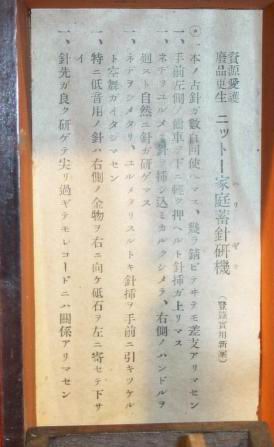 資源愛護
廃品更生
ニットー家庭蓄針研機
(登録実用新案)
一、本ノ古針ガ数百回使ヘマス、幾ラ錆ビテヰテモ差支アリマセン
一、手前左側ノ歯車ノ下ニ軽ク押ヘルト針挿ガ上リマス
一、ネヂヲユルメ針ヲ挿シ込ミカルクシメテ、右側ノハンドルヲ
廻スト自然ニ針ガ研ゲマス
一、ネヂヲシメタリ、ユルメタリスルトキ針挿ヲ手前ニ引キツケル
ト空舞ガイタシマセン
一、特ニ低音用ノ針ハ右側ノ金物ヲ右ニ向ケ砥石ヲ左ニ寄セテ下サ
イ
一、針先ガ良ク研ゲテ尖リ過ギテモレコードニハ関係アリマセン